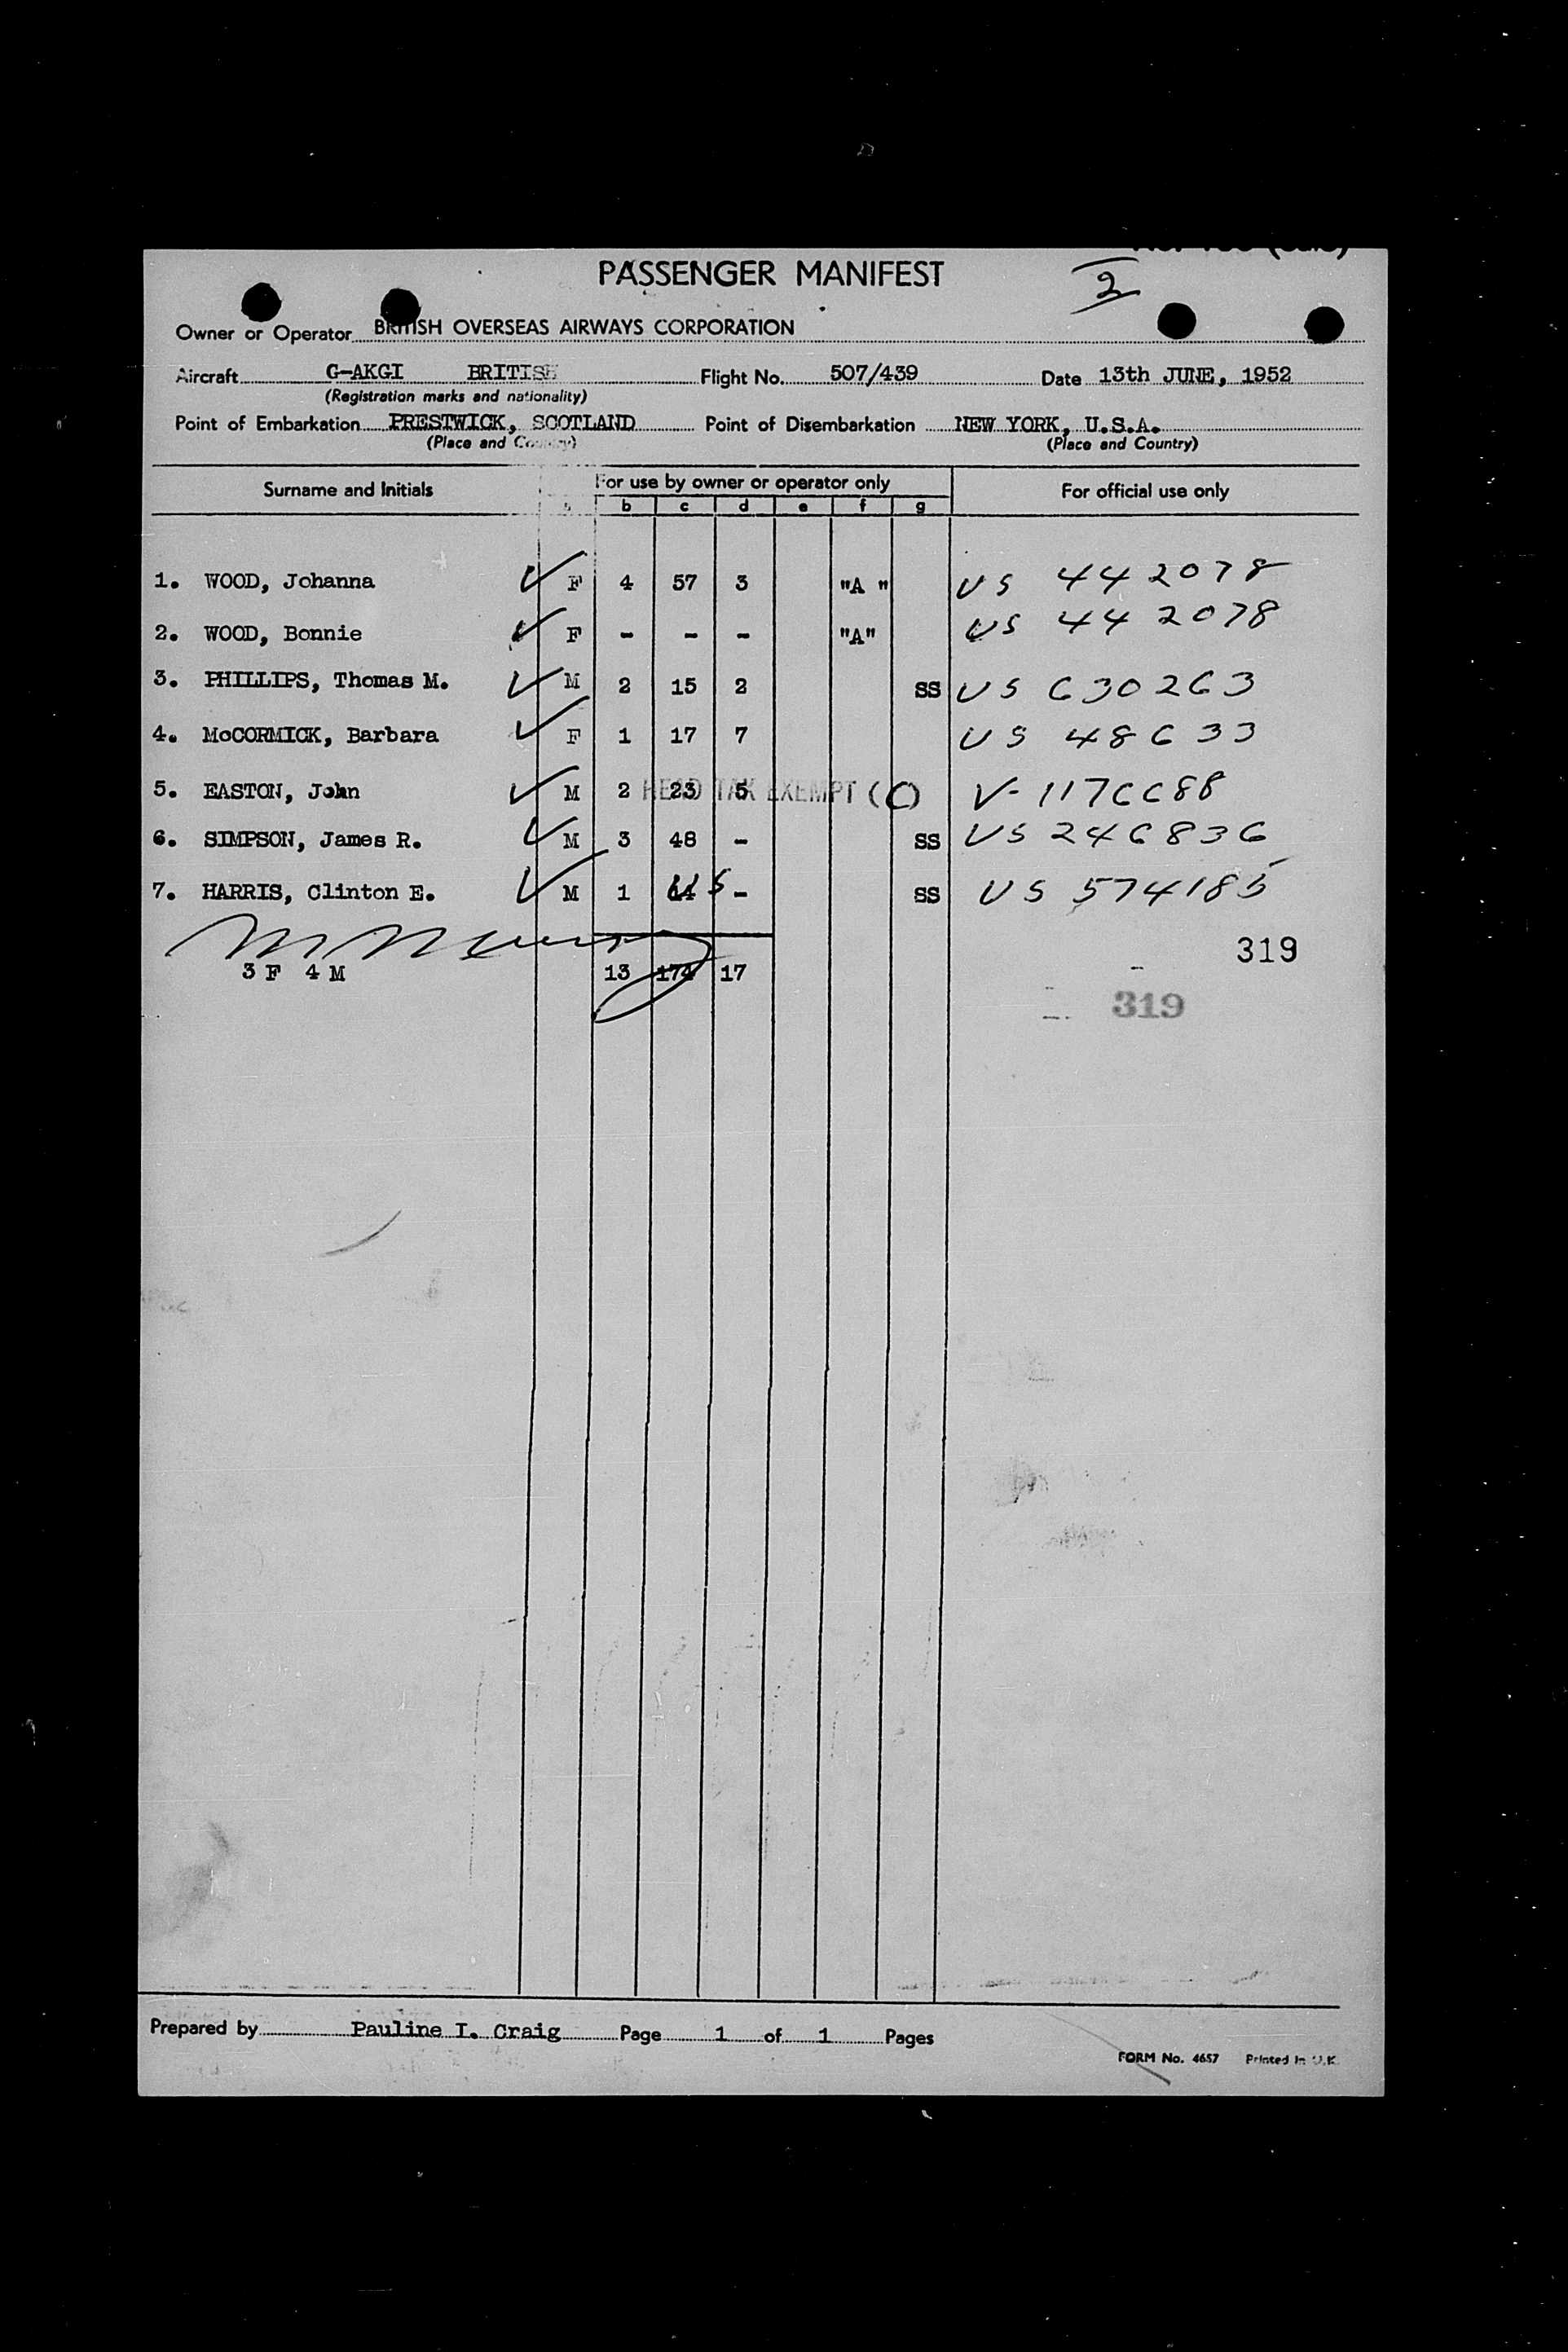 PASSENGER MANIFEST
2
Owner or Operator BRITISH OVERSEAS AIRWAYS CORPORATION
Aircraft G-AKGI BRITISH Flight No. 507/439 Date 13th JUNE, 1952
(Registration marks and nationality)
Point of Embarkation PRESTWICK, SCOTLAND Point of Disembarkation NEW YORK, U.S.A.
(Place and Country) (Place and Country)
Surname and Initials For use by owner or operator only For official use only
b c d e f g
1. WOOD, Johanna F 4 57 3 "A " US 442078
2. WOOD, Bonnie F - - - "A" US 442078
3. PHILLIPS, Thomas M. M 2 15 2 SS US 630263
4. McCORMICK, Barbara F 1 17 7 US 48633
5. EASTON, John M 2 23 5 HEAD TAX EXEMPT (C) V-1176688
6. SIMPSON, James R. M 3 48 - SS US 246836
7. HARRIS, Clinton E. M 1 US - SS US 574185
319
3 F 4 M 13 174 17
319
Prepared by Pauline I. Craig Page 1 of 1 Pages
FORM No. 4657 Printed in U.K.